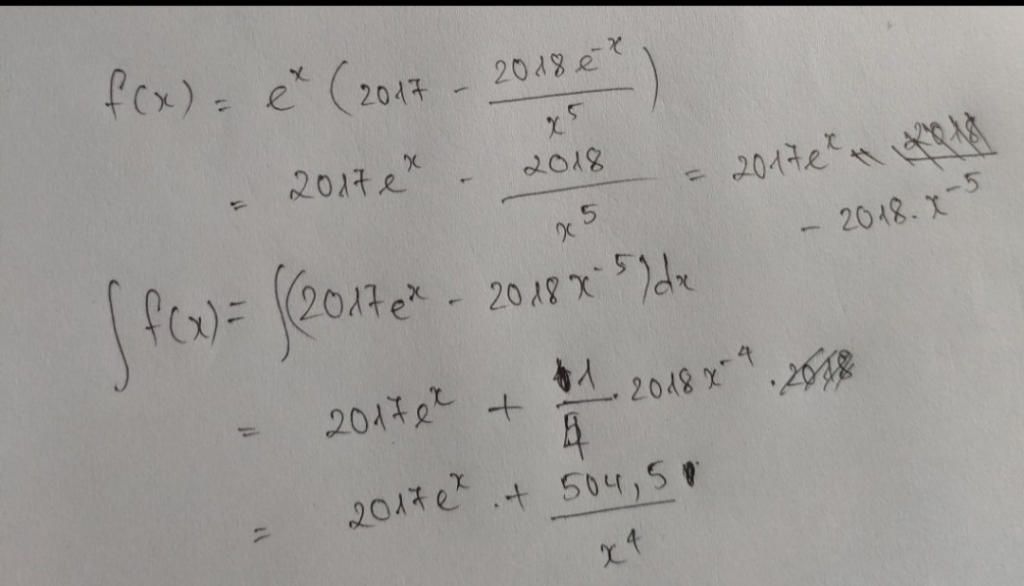 f(x) = e^x (2017 - \frac{2018 e^{-x}}{x^5})
= 2017 e^x - \frac{2018}{x^5} = 2017 e^x
- 2018. x^{-5}
∫ f(x) = ∫(2017 e^x - 2018 x^{-5}) dx
= 2017 e^x + \frac{1}{4} . 2018 x^{-4} .
= 2017 e^x . + \frac{504,5}{x^4}